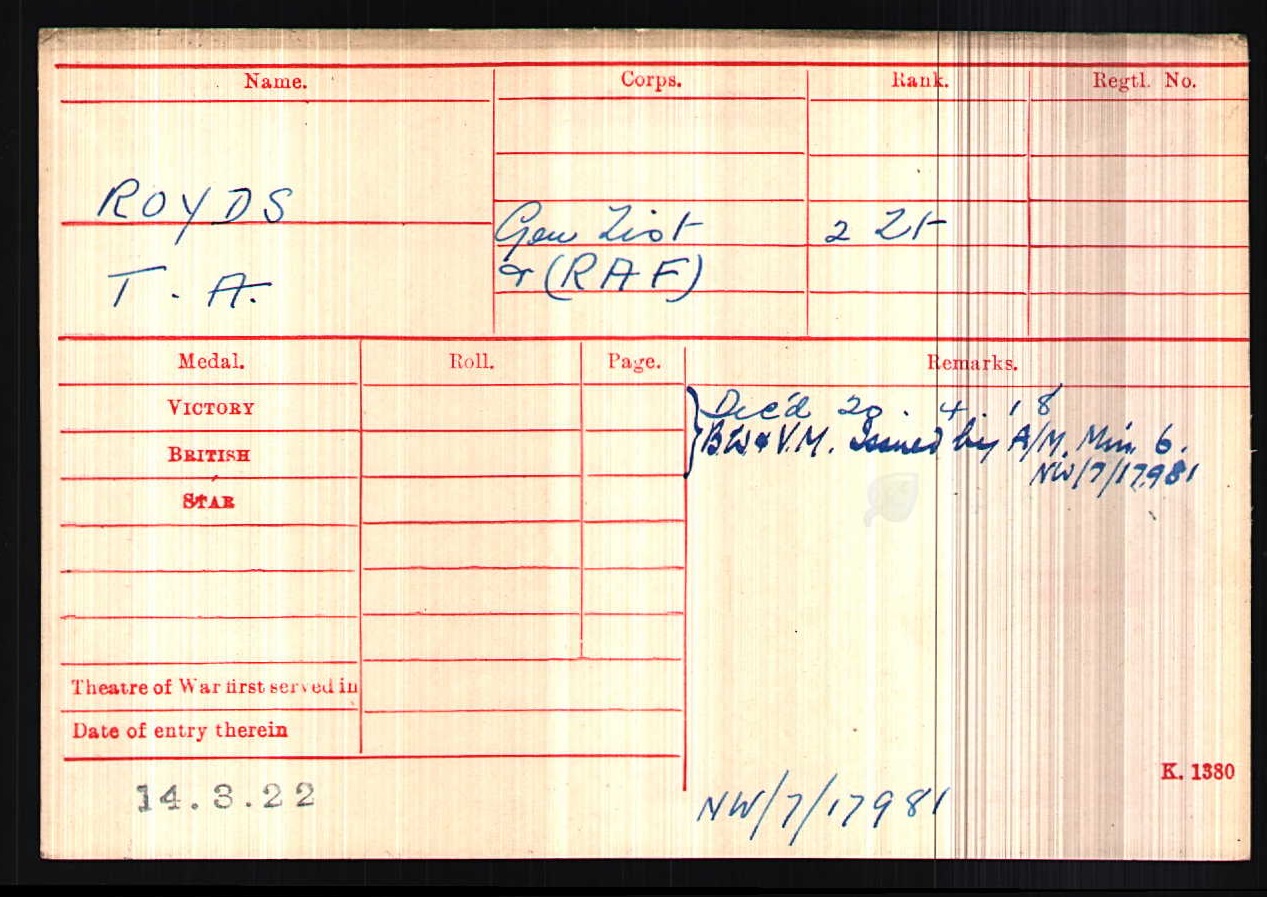 Name. Corps. Rank. Regtl. No.
ROYDS
Gen List 2 Lt
T. A. & (RAF)
Medal. Roll. Page. Remarks.
VICTORY Dec'd 20. 4. 18
BRITISH B.W & V.M. Issued by A/M. Min 6.
NW/7/17981
STAR
Theatre of War first served in
Date of entry therein
K. 1380
14.3.22 NW/7/17981